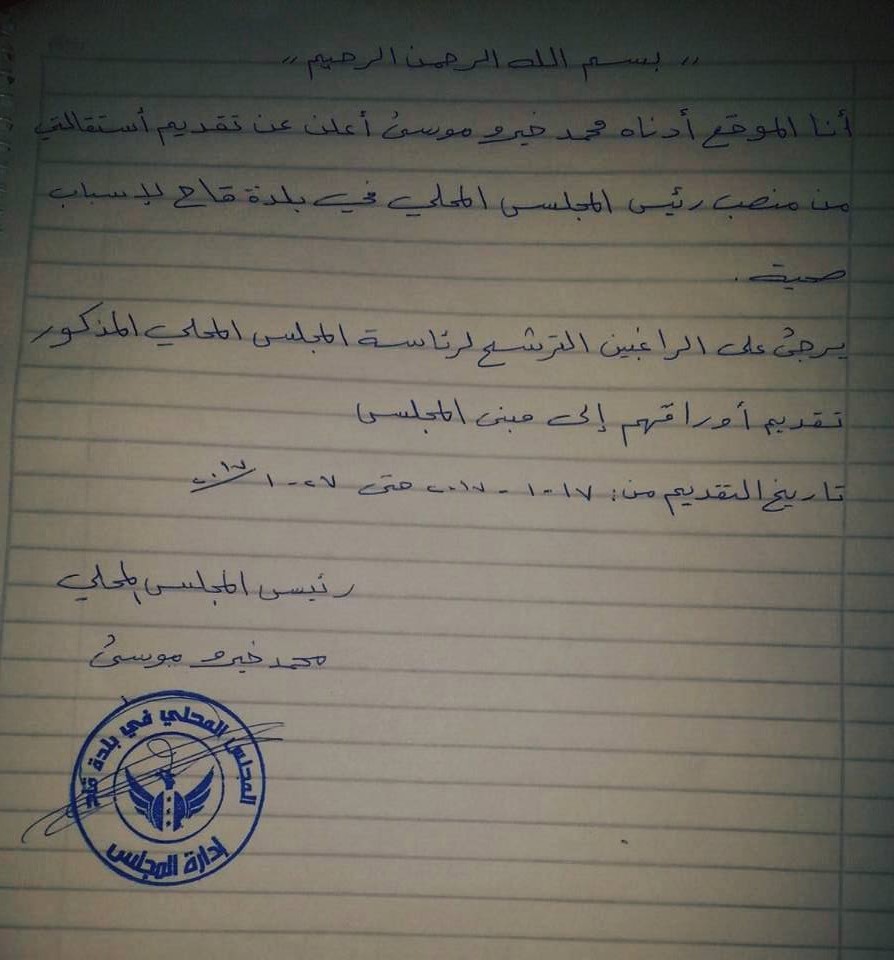 ,, بسم الله الرحمن الرحيم ,,
أنا الموقع أدناه محمد خيرو موسىُ أعلن عن تقديم أستقالتي
من منصب رئس المجلس المحلي في بلدة قاح لإسباب
صحية .
يرجىُ على الراغبين الترشح لرئاسة المجلس المحلي المذكور
تقديم أوراقهم إلى مبنى المجلس
تاريخ التقديم من: ١٧-١-٢٠١٧ حتى ٢٧-١/٢٠١٧
رئيس المجلس المحلي
محمد خيرو موسىُ
المجلس المحلي في بلدة قاح
إدارة المجلس